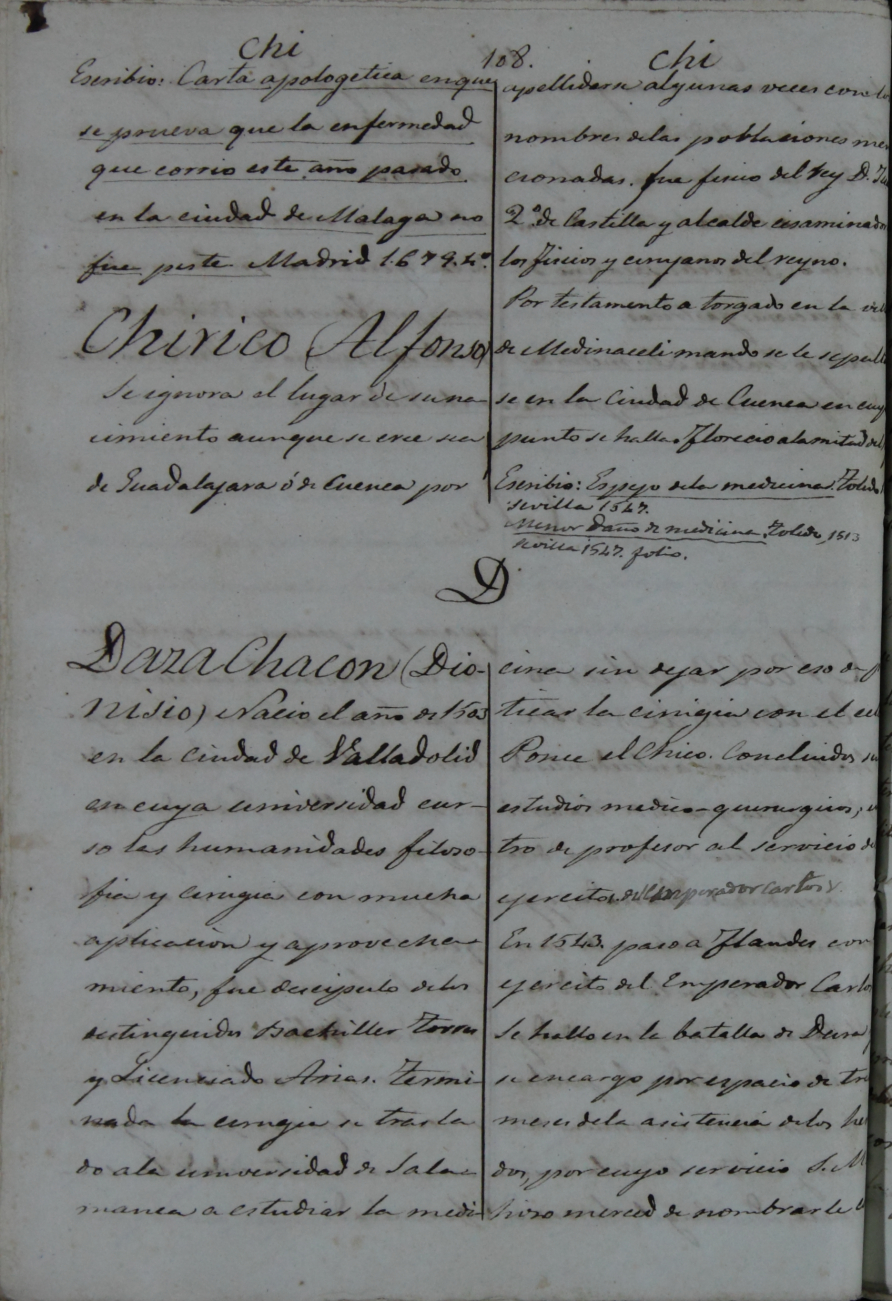 Chi
108.
Chi
Escribio: Carta apologetica en que
se prueva que la enfermedad
que corrio este año pasado
en la ciudad de Malaga no
fue peste Madrid 1679. 4º.
Chirico (Alfonso)
Se ignora el lugar de su na-
cimiento aunque se cree sea
de Guadalajara ó de Cuenca por
apellidarse algunas veces con lo
nombres de las poblaciones me
cionadas. fue fisico del Rey D. Ju
2º de Castilla y alcalde ecsaminador
los fisicos y cirujanos del reyno.
Por testamento a torgado en la vil
de Medinaceli mando se le sepult
se en la Ciudad de Cuenca en cuy
punto se halla. Florecio a la mitad del
Escribio: Espejo de la medicina. Toledo
Sevilla 1547.
Menor daño de medicina. Toledo, 1513
Sevilla 1547. folio.
D
Daza Chacon (Dio-
nisio) Nacio el año de 1503
en la ciudad de Valladolid
en cuya universidad cur-
so las humanidades filoso-
fia y cirugia con mucha
aplicacion y aprovecha-
miento, fue discipulo de los
distinguidos Bachiller Torres
y Licenciado Arias. Termi-
nada la cirugia se trasla
do a la universidad de Sala-
manca a estudiar la medi-
cina sin dejar por eso de p
ticar la cirugia con el cel
Ponce el Chico. Concluidos su
estudios medico-quirurgicos, e
tro de profesor al servicio de
ejercitos del Emperador Carlos V.
En 1543. paso a Flandes con
ejercito del Emperador Carlo
Se hallo en la batalla de Dura
se encargo por espacio de tr
meses de la asistencia de los he
dos, por cuyo servicio S. M
hizo merced de nombrarle